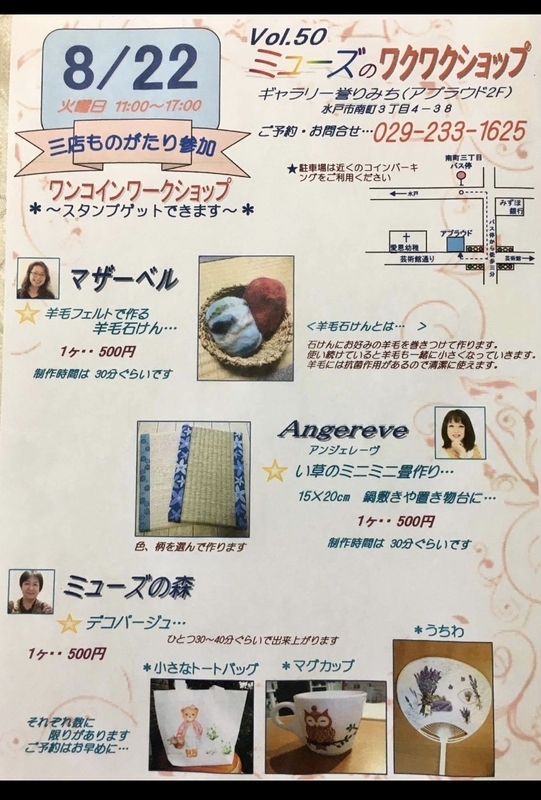 8/22
火曜日 11:00～17:00
三店ものがたり参加
ワンコインワークショップ
＊～スタンプゲットできます～＊
Vol.50
ミューズのワクワクショップ
ギャラリー誉りみち(アプラウド2F)
水戸市南町3丁目4-38
ご予約・お問合せ…029-233-1625
★駐車場は近くのコインパーキ
ングをご利用ください
南町三丁目
バス停
水戸
みずほ
銀行
バス停から徒歩三分
愛恩幼稚
アプラウド
芸術館通り
芸術館
マザーベル
☆羊毛フェルトで作る
羊毛石けん…
1ヶ・・500円
制作時間は 30分ぐらいです
＜羊毛石けんとは… ＞
石けんにお好みの羊毛を巻きつけて作ります。
使い続けていると羊毛も一緒に小さくなっていきます。
羊毛には抗菌作用があるので清潔に使えます。
Angereve
アンジェレーヴ
☆い草のミニミニ畳作り…
15×20cm 鍋敷きや置き物台に…
1ヶ・・500円
制作時間は 30分ぐらいです
色、柄を選んで作ります
ミューズの森
☆デコパージュ…
ひとつ30～40分ぐらいで出来上がります
1ヶ・・500円
＊小さなトートバッグ
＊マグカップ
＊うちわ
それぞれ数に
限りがあります
ご予約はお早めに…